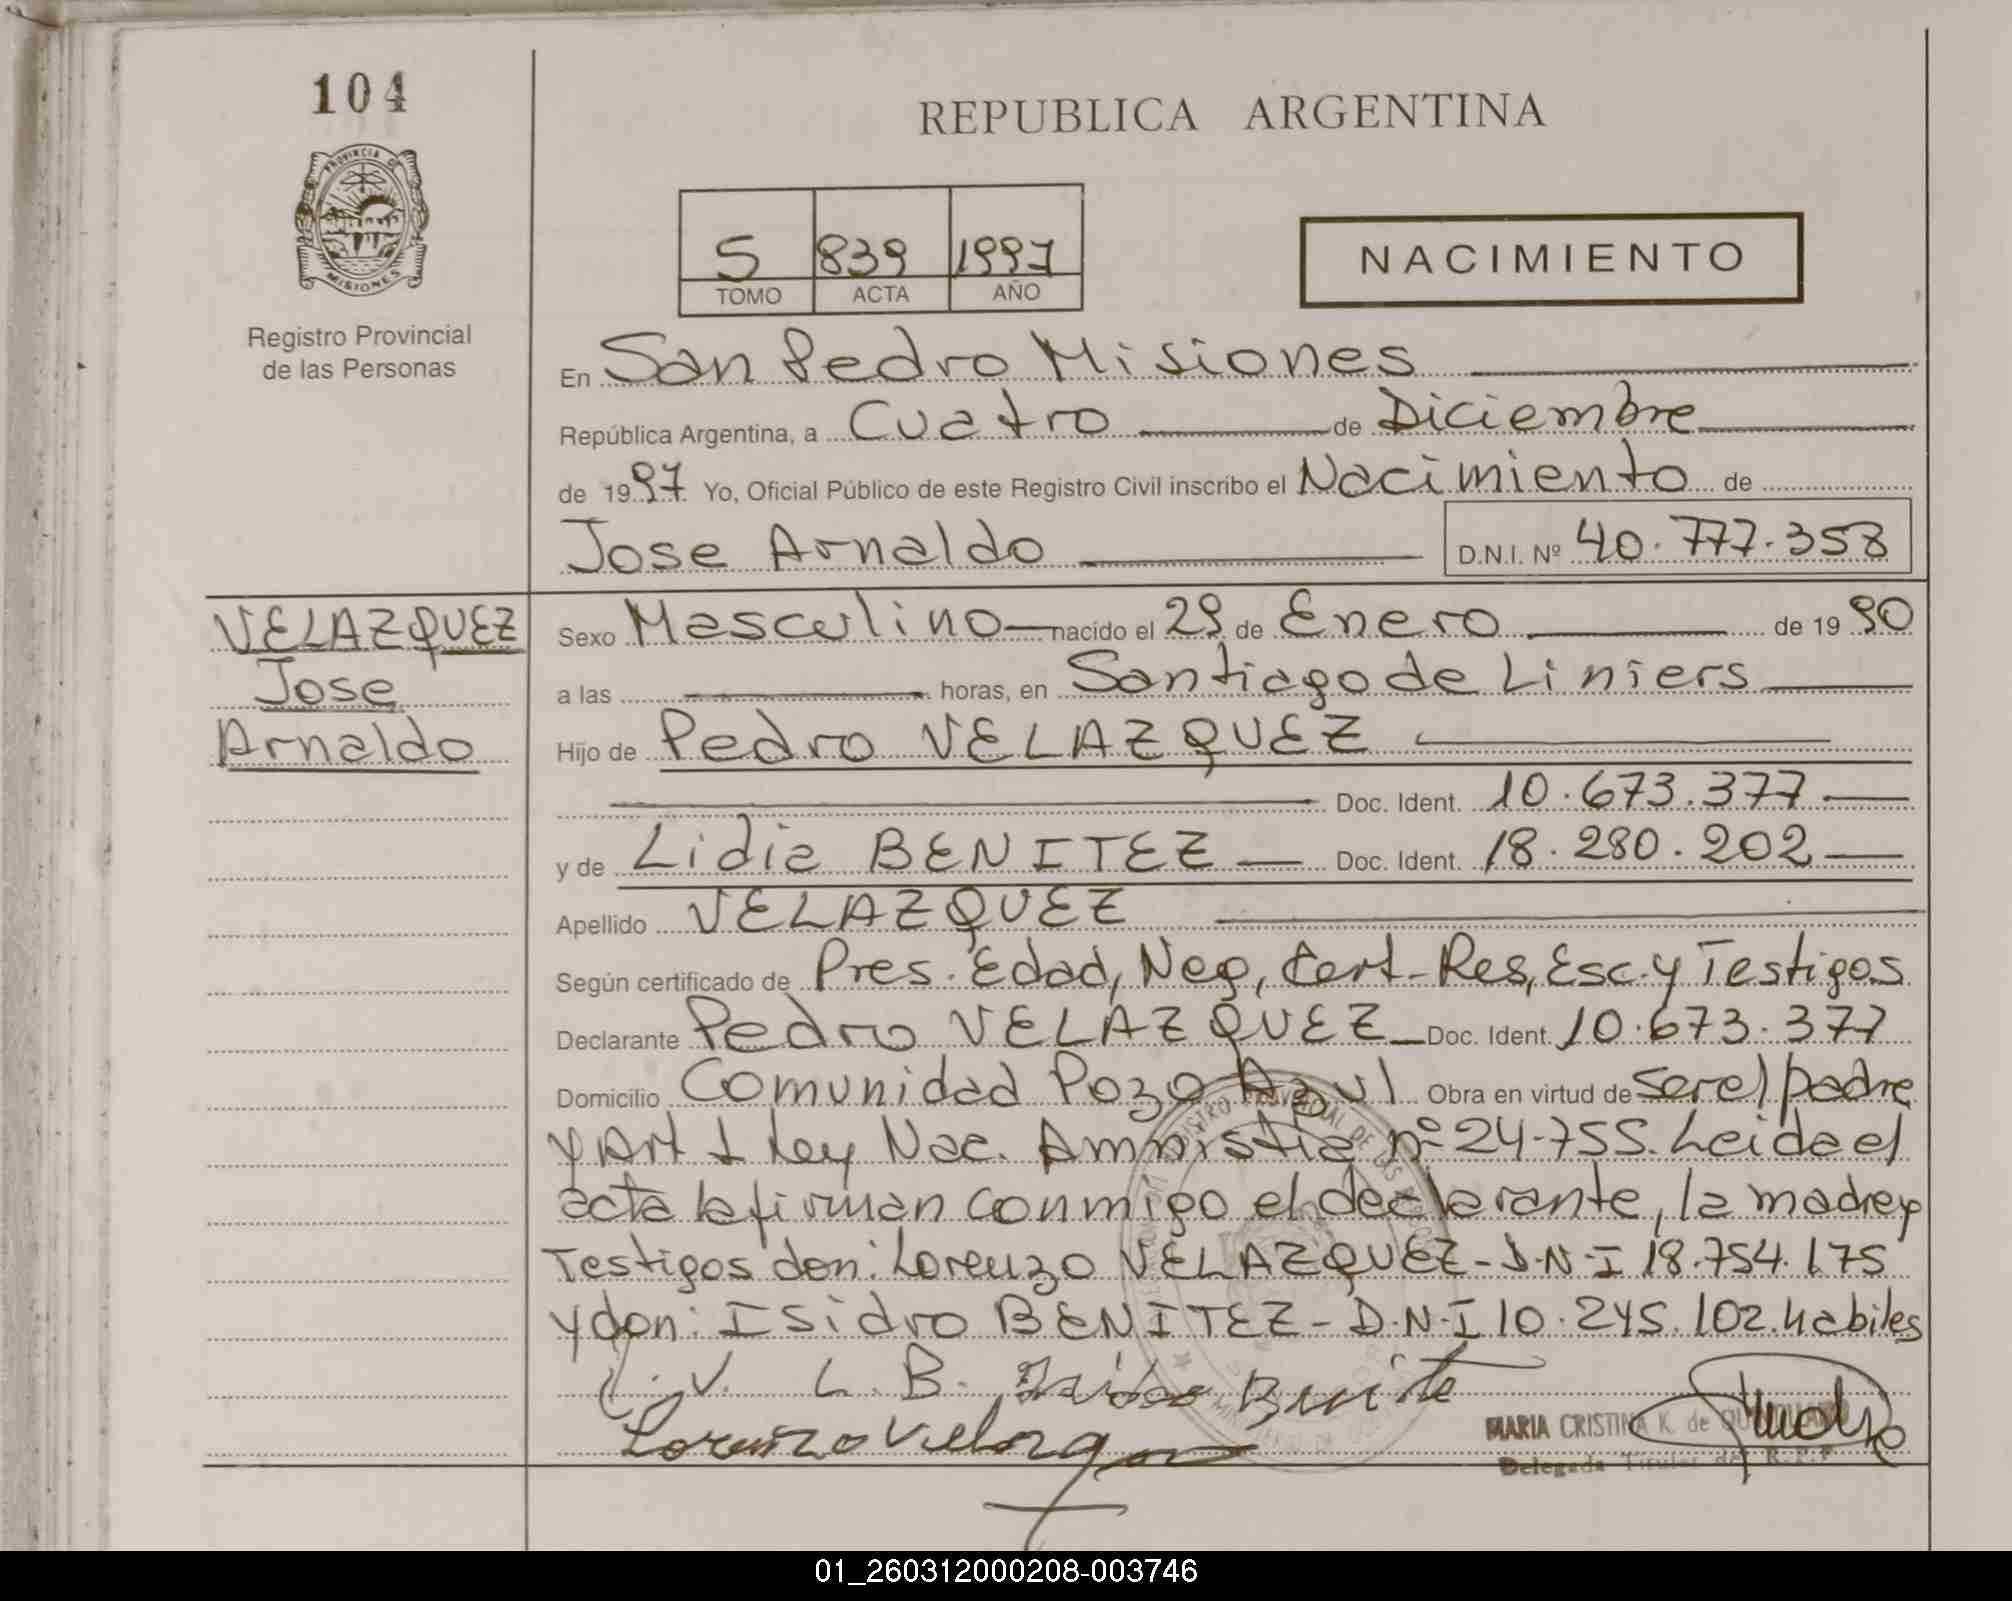 104
REPUBLICA ARGENTINA
PROVINCIA DE
MISIONES
Registro Provincial
de las Personas
5 839 1997
TOMO ACTA AÑO
NACIMIENTO
En San Pedro Misiones
República Argentina, a Cuatro de Diciembre
de 1997 Yo, Oficial Público de este Registro Civil inscribo el Nacimiento de
Jose Arnaldo D.N.I. Nº 40.777.358
VELAZQUEZ
Jose
Arnaldo
Sexo Masculino nacido el 29 de Enero de 1990
a las horas, en Santiago de Liniers
Hijo de Pedro VELAZQUEZ
Doc. Ident. 10.673.377
y de Lidia BENITEZ Doc. Ident. 18.280.202
Apellido VELAZQUEZ
Según certificado de Pres. Edad, Neg, Cert-Res, Esc. y Testigos
Declarante Pedro VELAZQUEZ Doc. Ident. 10.673.377
Domicilio Comunidad Pozo Azul Obra en virtud de ser el padre
y Art 1 Ley Nac. Amnistia nº 24.755. Leida el
acta la firman conmigo el declarante, la madre y
Testigos don: Lorenzo VELAZQUEZ - D.N.I 18.754.175
y don: Isidro BENITEZ - D.N.I 10.245.102. habiles
L. B. Benite
Lorenzo
MARIA CRISTINA K. de
Delegada Titular del R.P.P
01_260312000208-003746